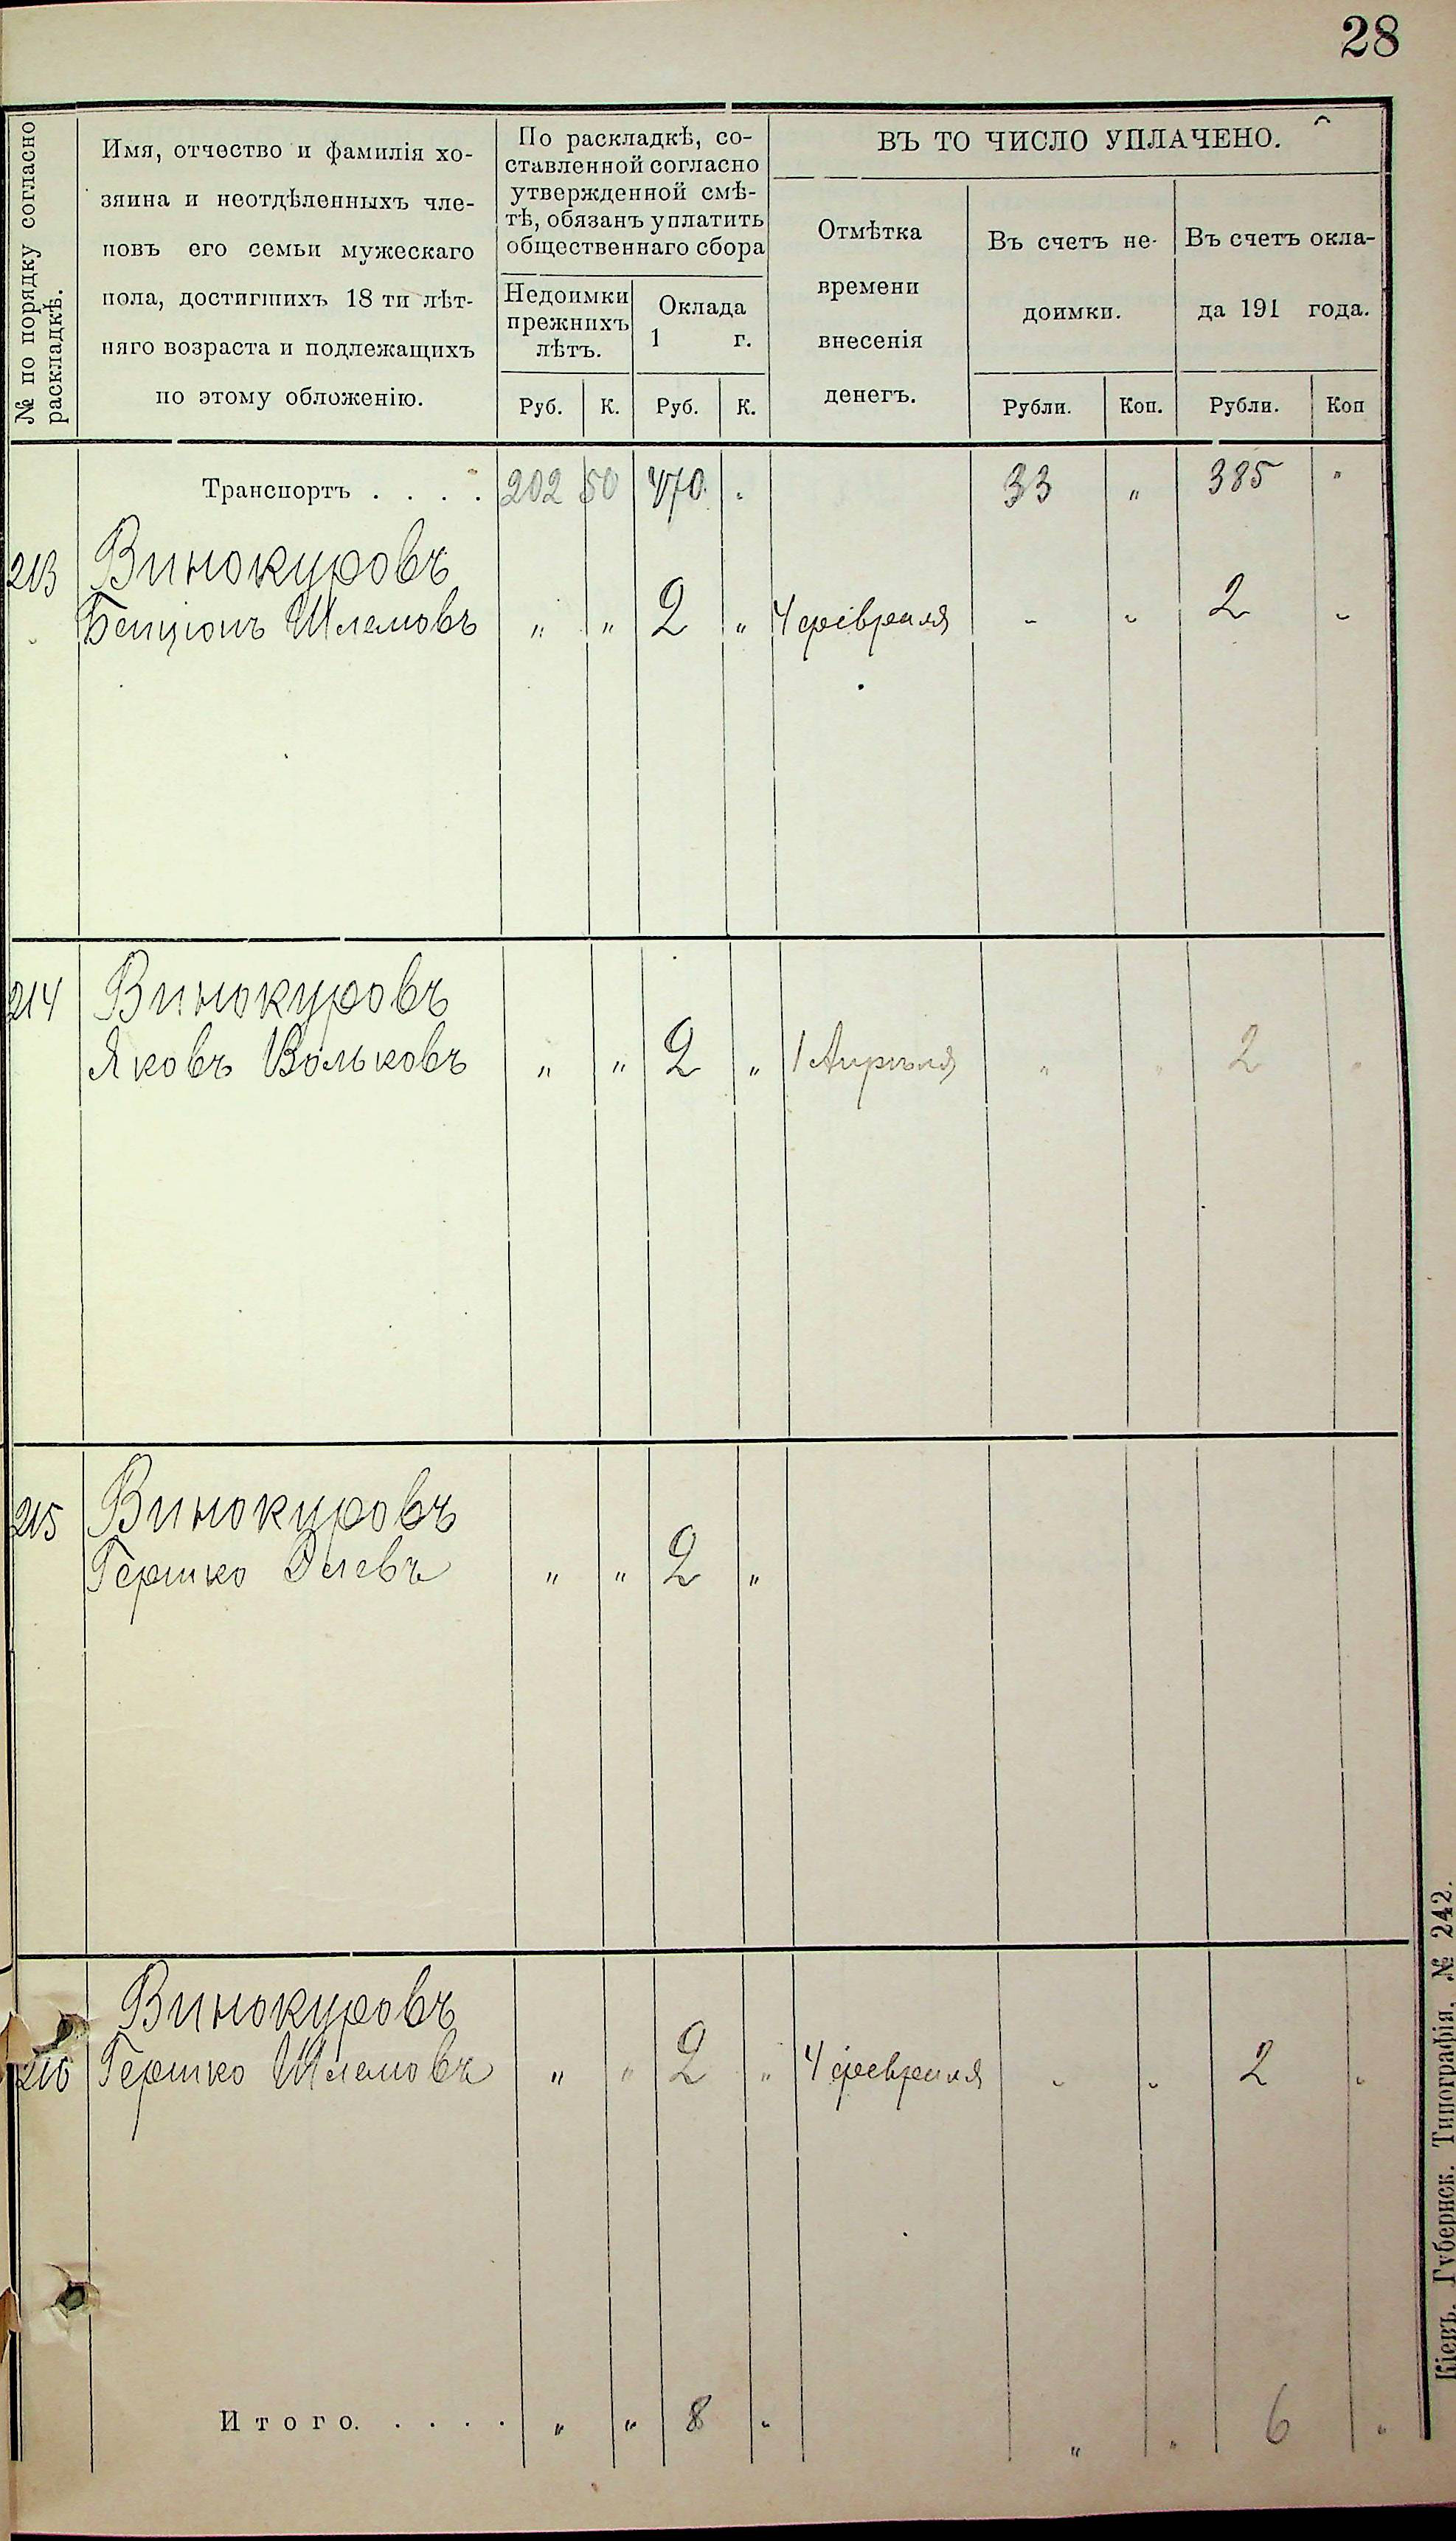 28
№ по порядку согласно
раскладкѣ.
Имя, отчество и фамилія хо-
зяина и неотдѣленныхъ чле-
новъ его семьи мужескаго
пола, достигшихъ 18 ти лѣт-
няго возраста и подлежащихъ
по этому обложенію.
По раскладкѣ, со-
ставленной согласно
утвержденной смѣ-
тѣ, обязанъ уплатить
общественнаго сбора
Недоимки
прежнихъ
лѣтъ.
Оклада
1 г.
Руб. К. Руб. К.
ВЪ ТО ЧИСЛО УПЛАЧЕНО.
Отмѣтка
времени
внесенія
денегъ.
Въ счетъ не-
доимки.
Въ счетъ окла-
да 191 года.
Рубли. Коп. Рубли. Коп
Транспортъ . . . . 202 50 470 „ 33 „ 385 „
213 Винокуровъ
Бенціонъ Шлемовъ „ „ 2 „ 4 февраля „ „ 2 „
214 Винокуровъ
Яковъ Вольковъ „ „ 2 „ 1 Апрѣля „ „ 2 „
215 Винокуровъ
Гершко „ „ 2 „
216 Винокуровъ
Гершко Шлемовъ „ „ 2 „ 4 февраля „ „ 2 „
Итого. . . . . „ „ 8 „ „ „ 6 „
Кіевъ. Губернск. Типографія. № 242.